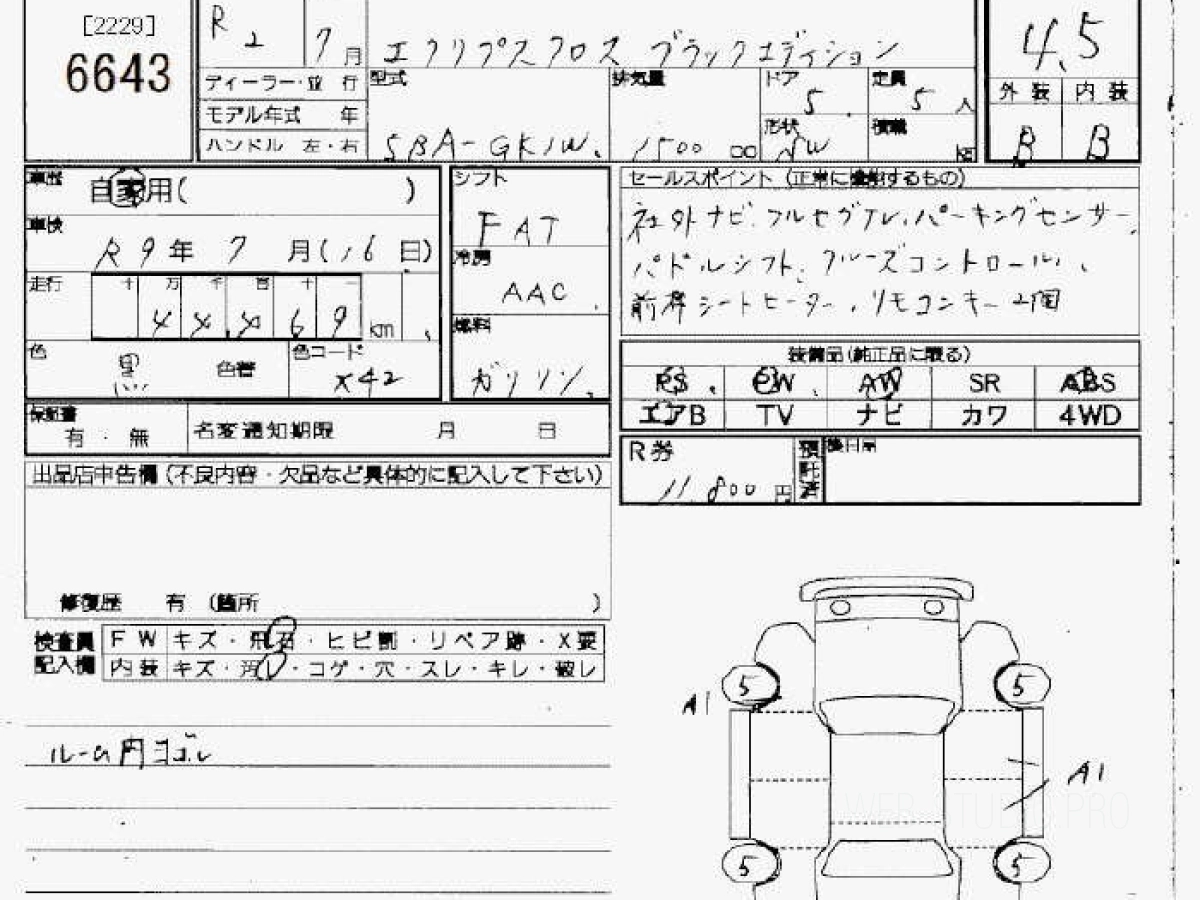 [2229]
6643
R2 7月 エクリプスクロス ブラックエディション
4.5
ディーラー・並行
モデル年式 年
ハンドル 左・右
型式 5BA-GK1W.
排気量 1500 cc
ドア 5.
定員 5人
形状
積載 kg
外装 内装
B B
車歴 自家用( )
車検 R9年7月(16日)
走行 十 万 千 百 十 一
4 4 4 6 9 km
色 黒 色替
色コード X42
シフト FAT
冷房 AAC
燃料 ガソリン.
セールスポイント (正常に機能するもの)
社外ナビ.フルセグTV.パーキングセンサー.
パドルシフト.クルーズコントロール.
前席シートヒーター.リモコンキー2個
装備品(純正品に限る)
PS PW AW SR ABS
エアB TV ナビ カワ 4WD
保証書 有・無
名変通知期限 月 日
R券 11.800円
預託済
後日品
出品店申告欄(不良内容・欠品など具体的に記入して下さい)
修復歴 有 (箇所 )
検査員記入欄
FW キズ・飛石・ヒビ割・リペア跡・X要
内装 キズ・汚レ・コゲ・穴・スレ・キレ・破レ
ルーム内ヨゴレ
5 5
A1
A1
WEB STUDIO PRO
5 5